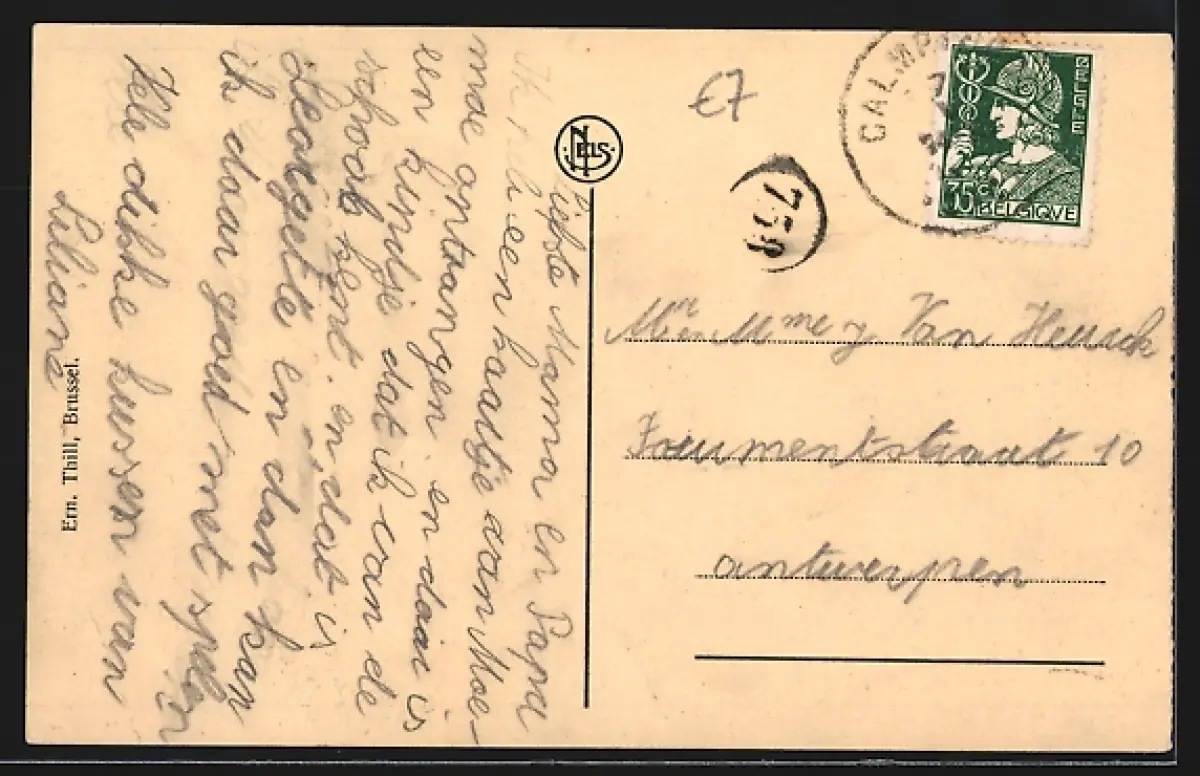 Liefste Mama en Papa
Ik heb een kaartje van Moe-
moe ontvangen en daar is
een kindje dat ik van de
school kent. en dat is
Georgette en dan kan
ik daar goed met spelen
Vele dikke kussen van
Liliane
Ern. Thill, Brussel.
NELS
€7
758
CALMP
BELGIE
35c
BELGIQUE
Mr en Mme Van Heurck
Trumentstraat 10
antwerpen